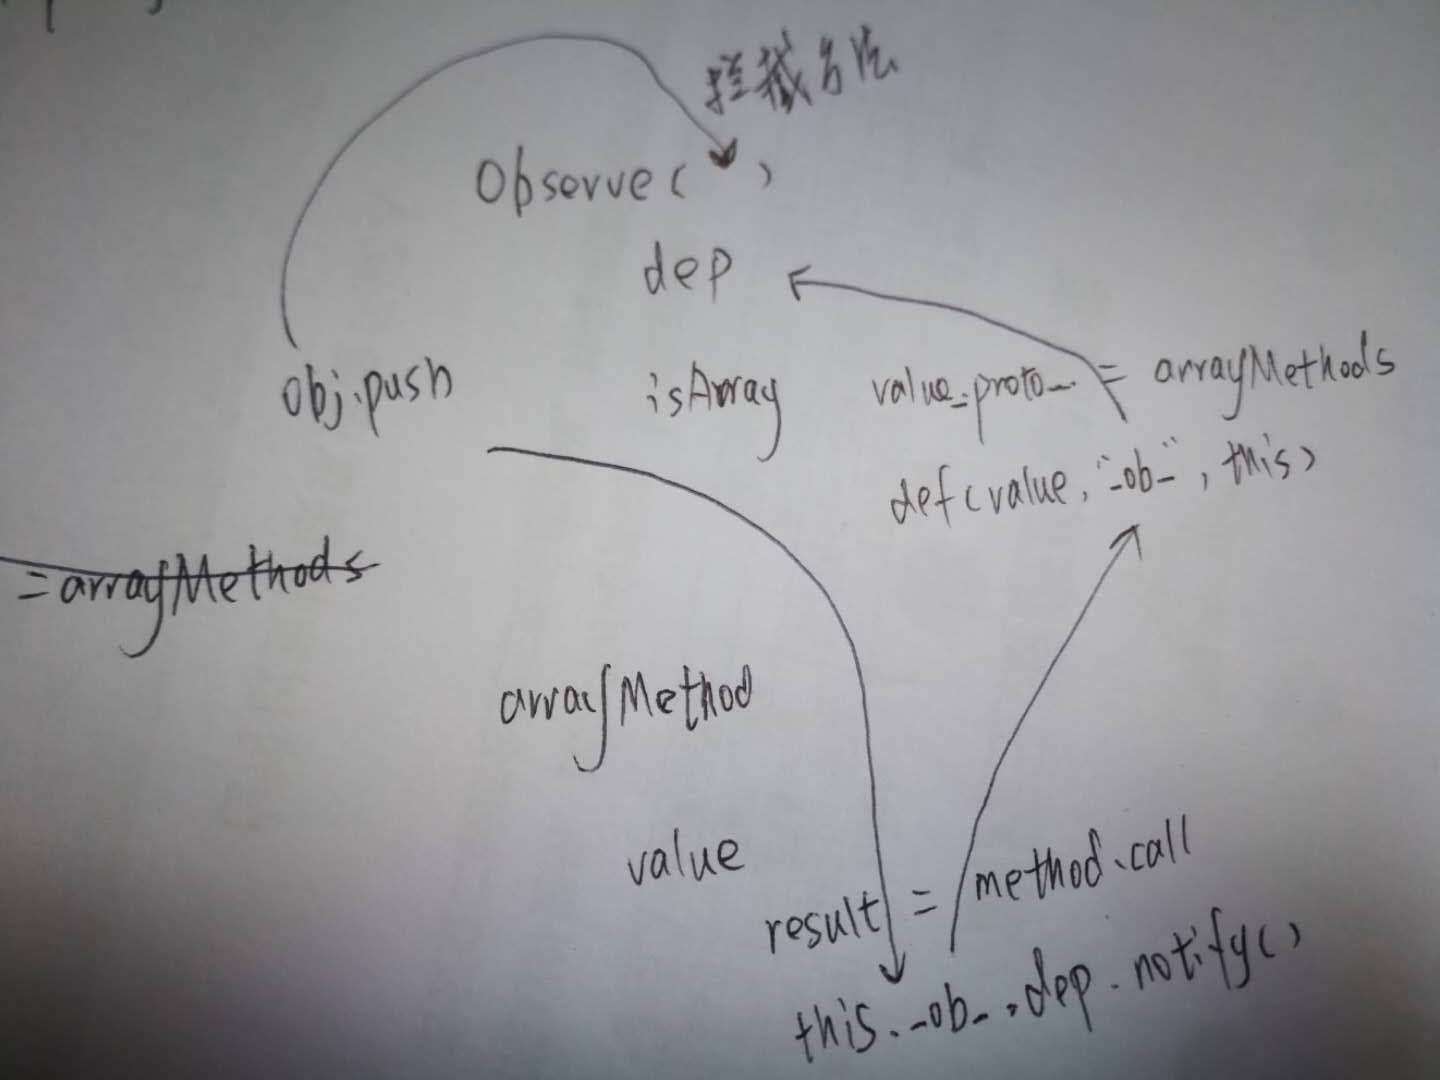 拦截方法
Observe( )
dep
obj.push
isArray
value_.proto_. = arrayMethods
def(value, "_ob_", this)
= arrayMethods
arrayMethod
value
result = method.call
this._ob_.dep.notify()